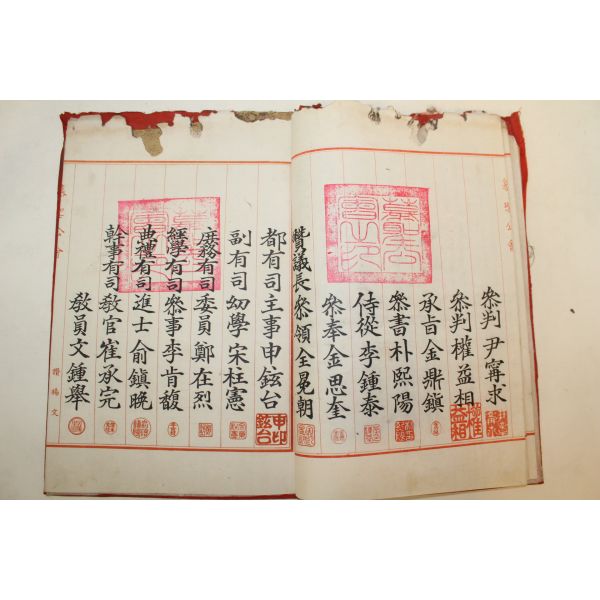 參判 尹甯求
參判 權益相
承旨 金鼎鎭
參書 朴熙陽
侍從 李鍾泰
參奉 金思奎
贊議長 參領 全冕朝
都有司 主事 申鉉台
副有司 幼學 宋柱憲
庶務有司 委員 鄭在烈
經學有司 參事 李肯馥
典禮有司 進士 俞鎭晚
幹事有司 敎官 崔承完
敎員 文鍾舉
讚揚文